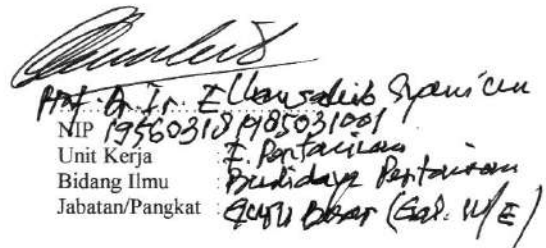 Prof. Dr. Ir.
NIP 19560318 198503 1001
Unit Kerja : F. Pertanian
Bidang Ilmu : Budidaya Pertanian
Jabatan/Pangkat : Guru Besar (Gol. IV/E)